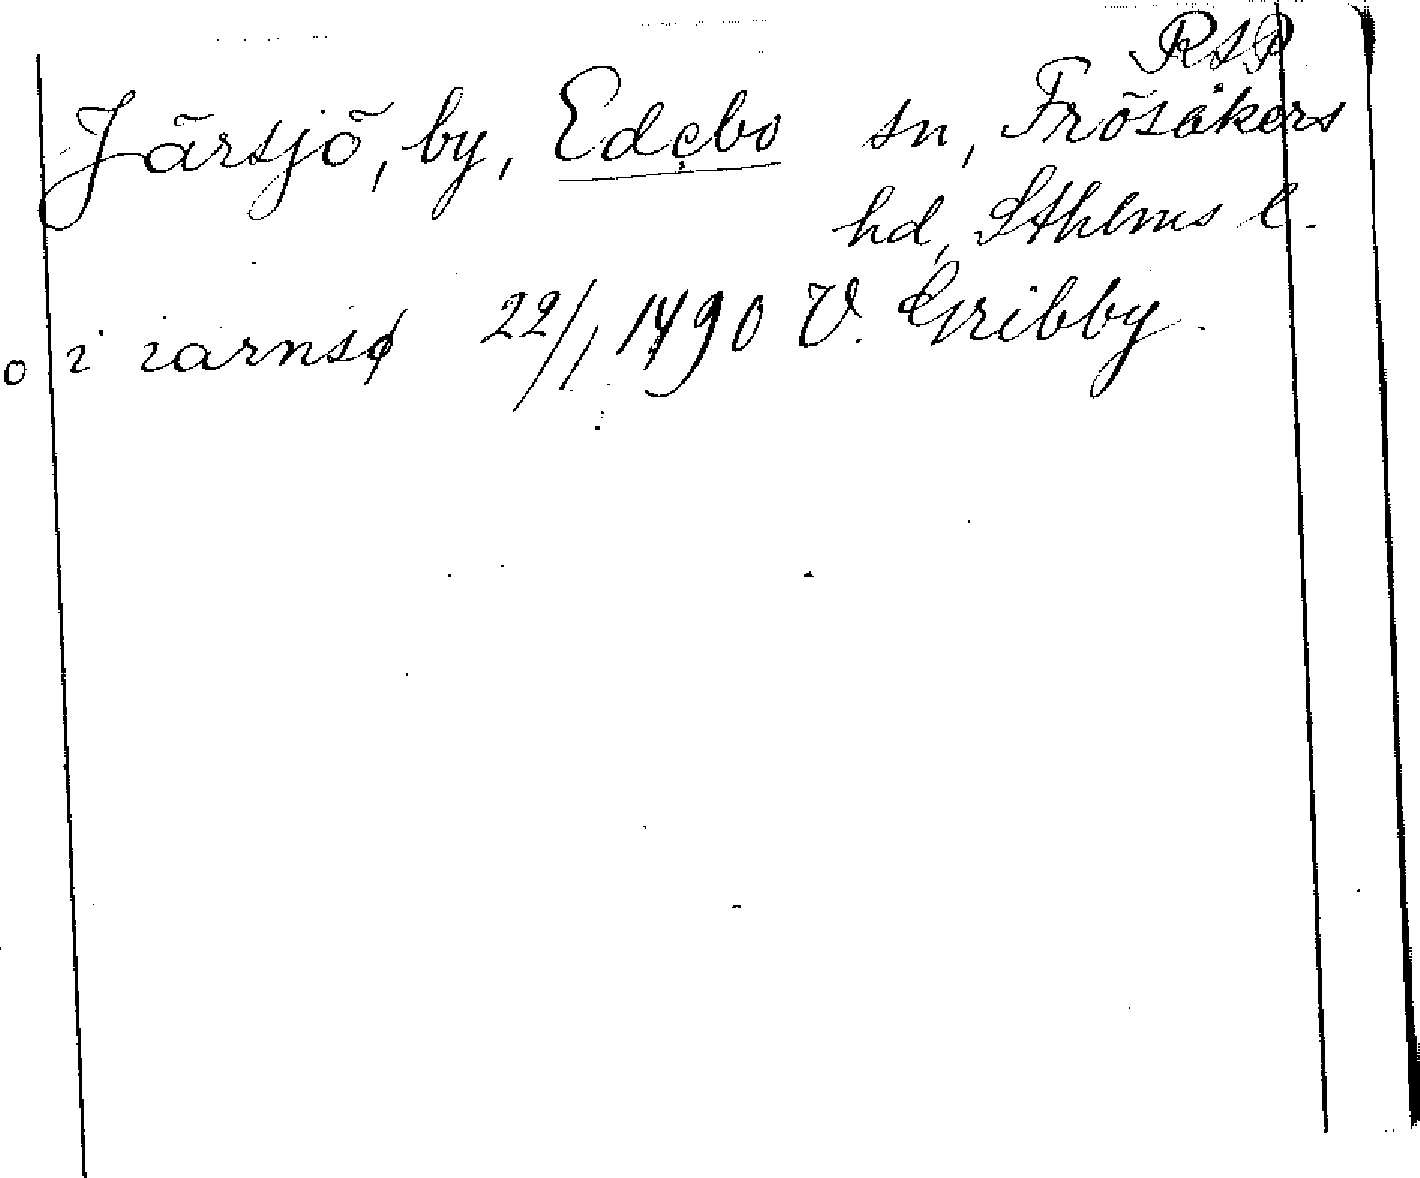 RAP
Järsjö, by, Edebo sn, Frösåkers
hd, Sthlms l.
o i iarnsø 22/1 1490 V. Gribby.